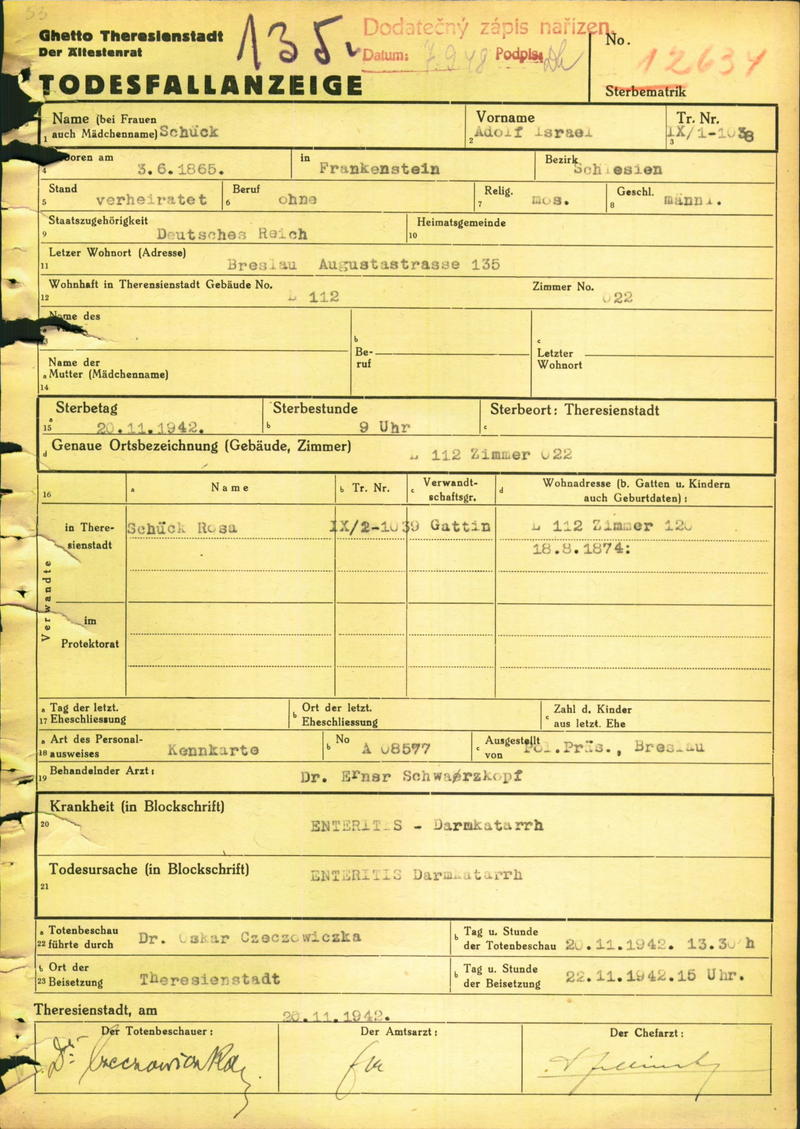 53
Ghetto Theresienstadt
Der Ältestenrat
135
Dodatečný zápis nařízen
Datum: 7.9.48 Podpis:
No. 12634
TODESFALLANZEIGE
Sterbematrik
Name (bei Frauen
1 auch Mädchenname) Schück
Vorname
2 Adolf Israel
Tr. Nr.
3 IX/1-1038
4 boren am 3.6.1865.
in Frankenstein
Bezirk Schlesien
Stand
5 verheiratet
Beruf
6 ohne
Relig.
7 mos.
Geschl.
8 männl.
Staatszugehörigkeit
9 Deutsches Reich
Heimatsgemeinde
10
Letzer Wohnort (Adresse)
11 Breslau Augustastrasse 135
Wohnhaft in Theresienstadt Gebäude No.
12 L 112
Zimmer No.
022
Name des
13
b
Be-
ruf
c
Letzter
Wohnort
Name der
a Mutter (Mädchenname)
14
Sterbetag
a
15 20.11.1942.
Sterbestunde
b 9 Uhr
Sterbeort: Theresienstadt
c
d Genaue Ortsbezeichnung (Gebäude, Zimmer)
L 112 Zimmer 022
16
a Name
b Tr. Nr.
c Verwandt-
schaftsgr.
d Wohnadresse (b. Gatten u. Kindern
auch Geburtdaten):
Verwandte
in There-
sienstadt
Schück Rosa IX/2-1039 Gattin L 112 Zimmer 120
18.8.1874:
im
Protektorat
a Tag der letzt.
17 Eheschliessung
b Ort der letzt.
Eheschliessung
c Zahl d. Kinder
aus letzt. Ehe
a Art des Personal-
18 ausweises Kennkarte
b No A 08577
c Ausgestellt
von Pol.Präs., Breslau
19 Behandelnder Arzt: Dr. Ernsr Schwarzkopf
Krankheit (in Blockschrift)
20 ENTERITIS - Darmkatarrh
Todesursache (in Blockschrift)
21 ENTERITIS Darmkatarrh
a Totenbeschau
22 führte durch Dr. Oskar Czeczowiczka
b Tag u. Stunde
der Totenbeschau 20.11.1942. 13.30 h
b Ort der
23 Beisetzung Theresienstadt
b Tag u. Stunde
der Beisetzung 22.11.1942.15 Uhr.
Theresienstadt, am 20.11.1942.
Der Totenbeschauer:
Der Amtsarzt:
Der Chefarzt: